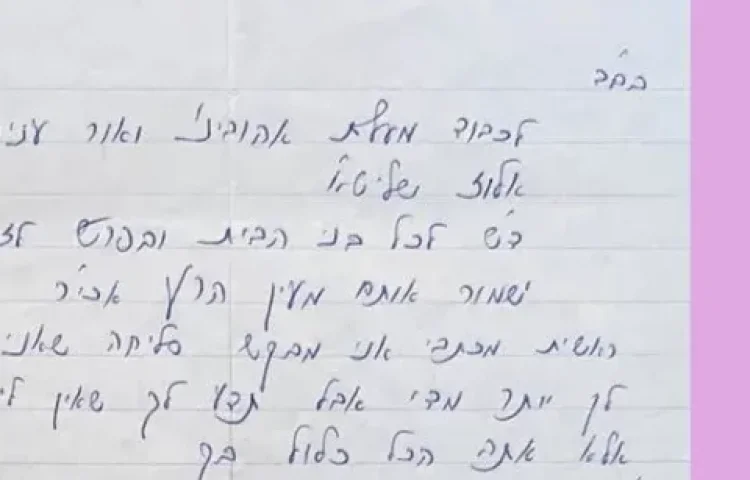 בחב
לכבוד מעלת אהובינו ואור עיני
אלוז שליט״א
ד״ש לכל בני הבית ובפרט
ישמור אותם מעין הרע אכי״ר
ראשית מכתבי אני מבקש סליחה שאני
לך יותר מדי אבל תדע לך שאין לי
אלא אתה הכל כלול בך